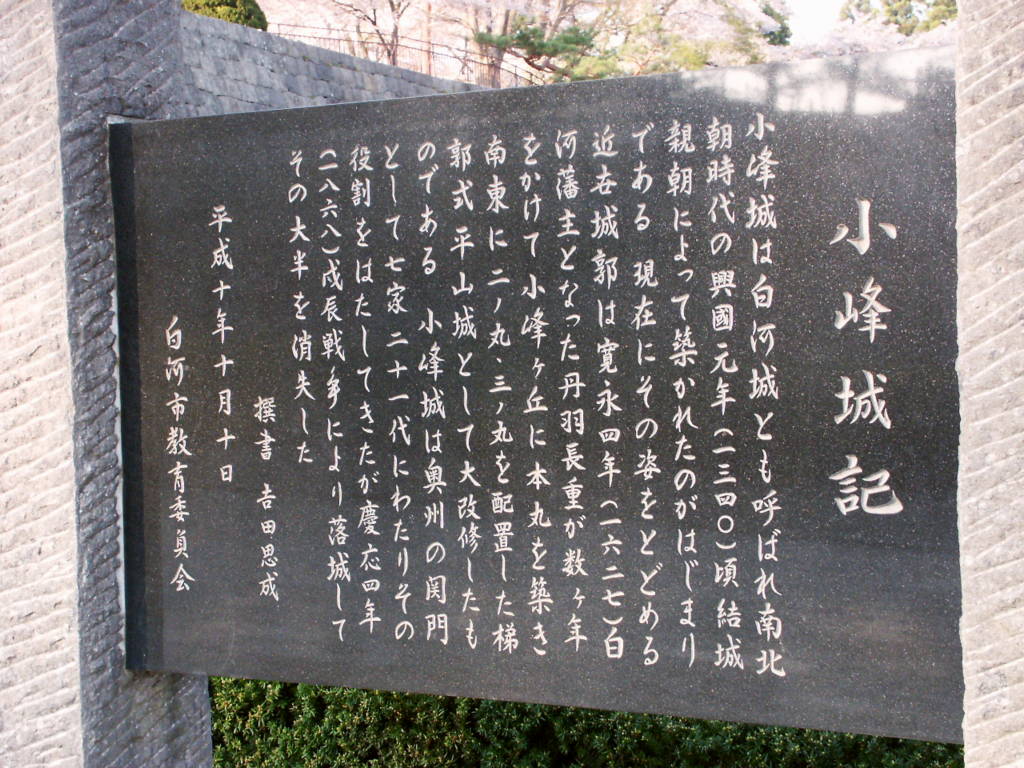 小峰城記
小峰城は白河城とも呼ばれ南北
朝時代の興國元年(一三四〇)頃結城
親朝によって築かれたのがはじまり
である 現在にその姿をとどめる
近世城郭は寛永四年(一六二七)白
河藩主となった丹羽長重が数ヶ年
をかけて小峰ヶ丘に本丸を築き
南東に二ノ丸、三ノ丸を配置した梯
郭式平山城として大改修したも
のである 小峰城は奥州の関門
として七家二十一代にわたりその
役割をはたしてきたが慶応四年
(一八六八)戊辰戦争により落城して
その大半を消失した
撰書 吉田思成
平成十年十月十日
白河市教育委員会